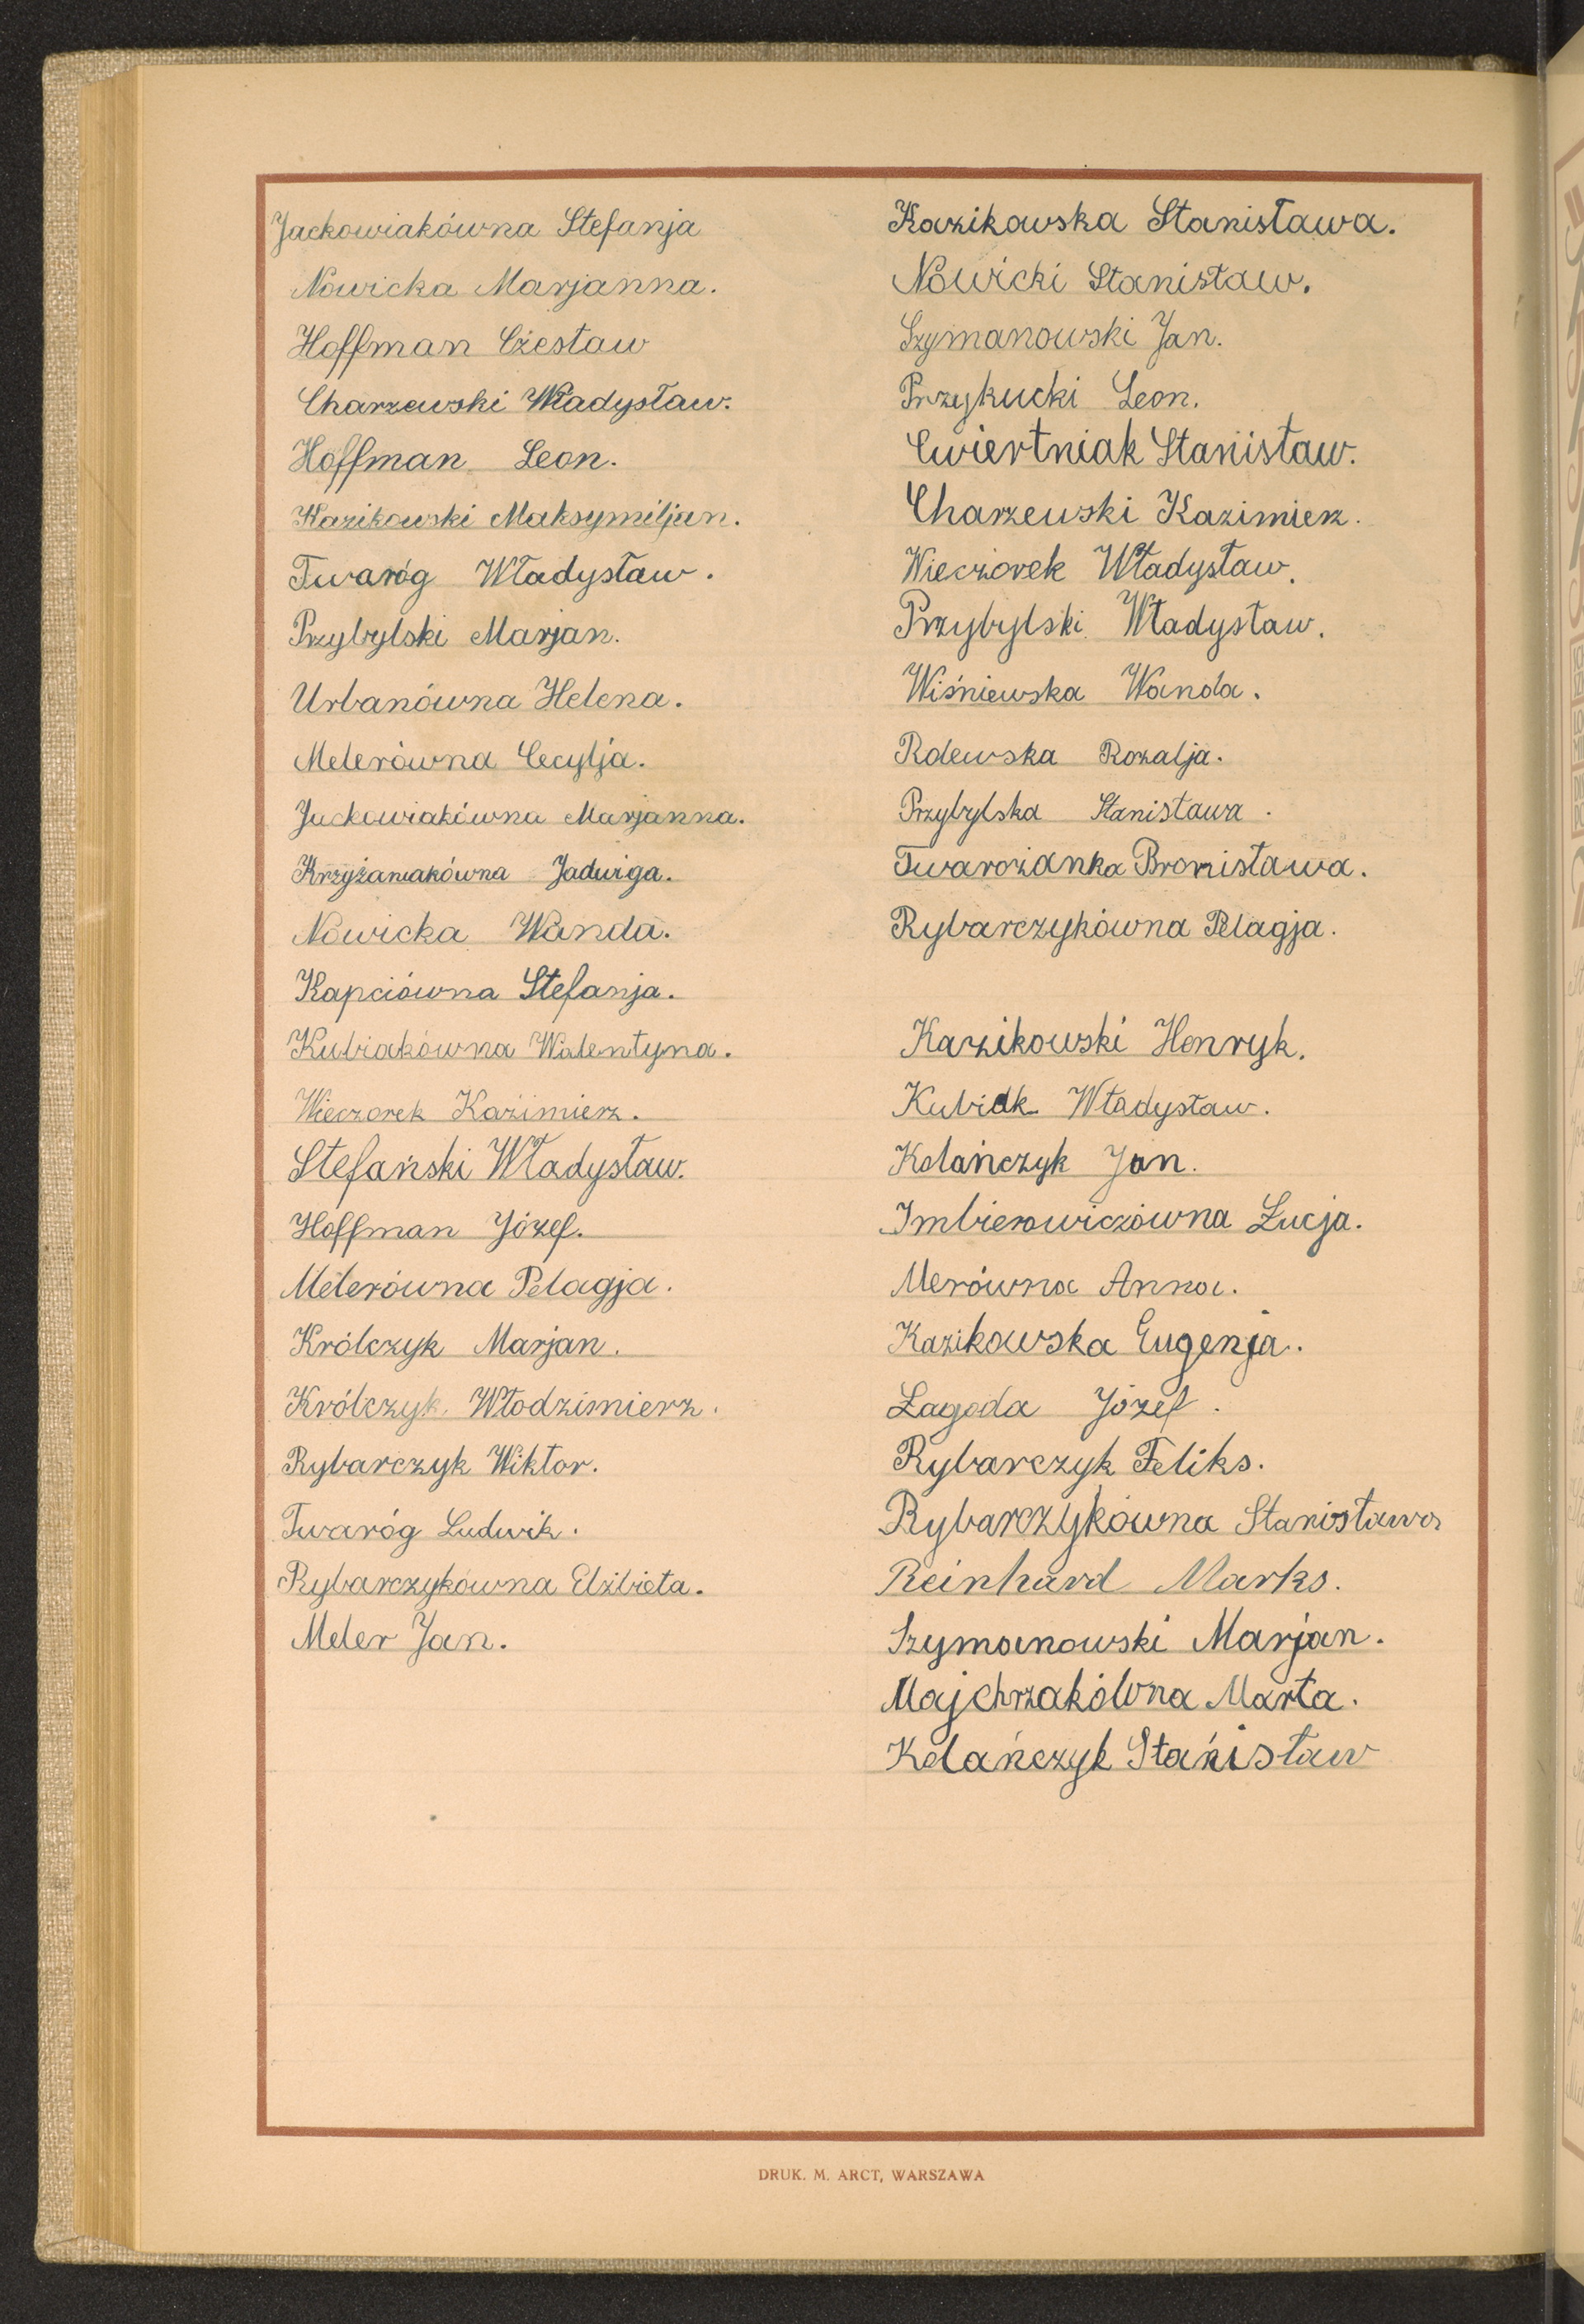 Jackowiakówna Stefanja
Nowicka Marjanna.
Hoffman Czesław
Charzewski Władysław.
Hoffman Leon.
Kazikowski Maksymiljan.
Twaróg Władysław.
Przybylski Marjan.
Urbanówna Helena.
Melerówna Cecylja.
Jackowiakówna Marjanna.
Krzyżaniakówna Jadwiga.
Nowicka Wanda.
Kapciówna Stefanja.
Kubiakówna Walentyna.
Wieczorek Kazimierz.
Stefański Władysław.
Hoffman Józef.
Melerówna Pelagja.
Królczyk Marjan.
Królczyk Włodzimierz.
Rybarczyk Wiktor.
Twaróg Ludwik.
Rybarczykówna Elżbieta.
Meler Jan.
Kazikowska Stanisława.
Nowicki Stanisław.
Szymanowski Jan.
Przykucki Leon.
Cwiertniak Stanisław.
Charzewski Kazimierz.
Wieczorek Władysław.
Przybylski Władysław.
Wiśniewska Wanda.
Rolewska Rozalja.
Przybylska Stanisława.
Twarożanka Bronisława.
Rybarczykówna Pelagja.
Kazikowski Henryk.
Kubiak Władysław.
Kolańczyk Jan.
Imbierowiczówna Łucja.
Merówna Anna.
Kazikowska Eugenja.
Łagoda Józef.
Rybarczyk Feliks.
Rybarczykówna Stanisława
Reinhard Marks.
Szymanowski Marjan.
Majchrzakówna Marta.
Kolańczyk Stanisław
DRUK. M. ARCT, WARSZAWA